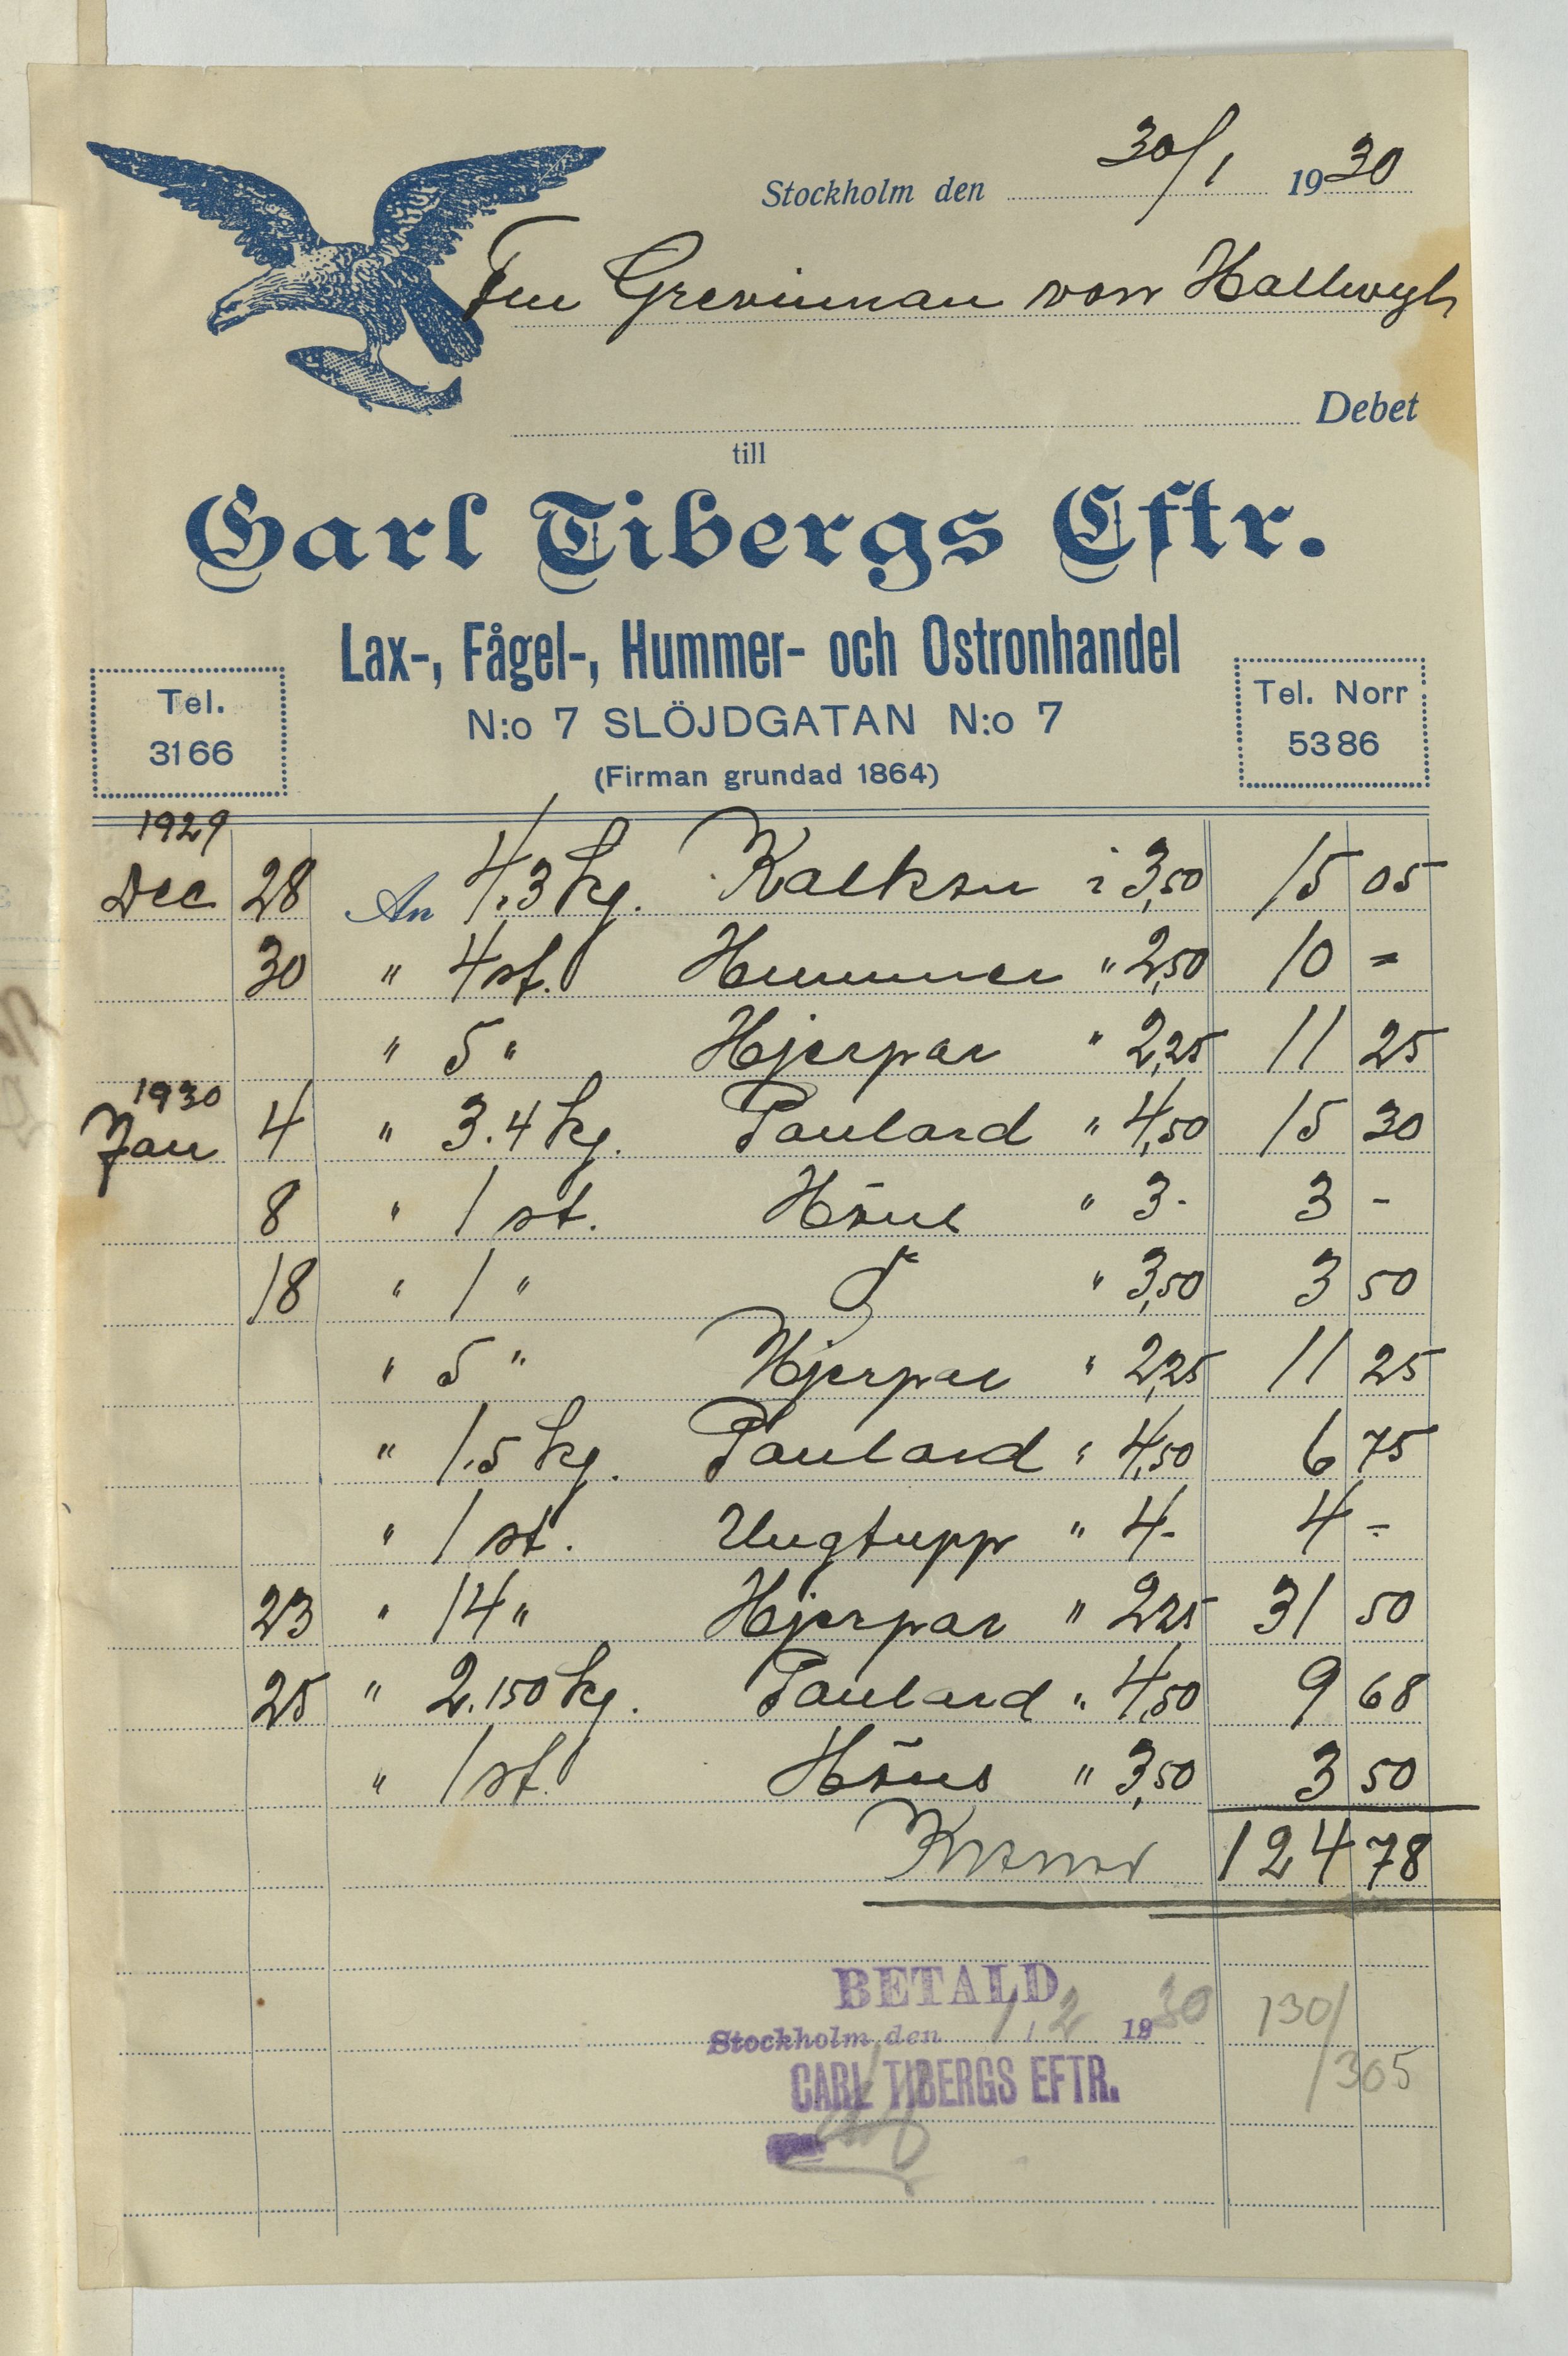 Stockholm den 30/1 1930
Fru Grevinnan von Hallwyl
Debet
till
Carl Tibergs Eftr.
Lax-, Fågel-, Hummer- och Ostronhandel
Tel. 3166
N:o 7 SLÖJDGATAN N:o 7
Tel. Norr 5386
(Firman grundad 1864)
1929
Dec 28 An 4.3 kg. Kalkon à 3,50 15 05
30 " 4 st. Hummer " 2,50 10 =
" 5 " Hjerpar " 2,25 11 25
1930
Jan 4 " 3.4 kg. Poulard " 4,50 15 30
8 " 1 st. Höns " 3- 3 -
18 " 1 " " 3,50 3 50
" 5 " Hjerpar " 2,25 11 25
" 1.5 kg. Poulard " 4,50 6 75
" 1 st. Ungtupp " 4- 4 -
23 " 14 " Hjerpar " 2,25 31 50
25 " 2.150 kg. Poulard " 4,50 9 68
" 1 st. Höns " 3,50 3 50
Kronor 124 78
BETALD
Stockholm den 1/2 1930
130/
CARL TIBERGS EFTR.
/305